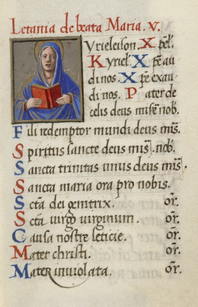 Letania de beata Maria. V.
Kyrieleison. X p̄el.
Kyriel. X p̄e au
di nos. X p̄e exau
di nos. Pater de
celis deus miser̄ nob̄.
Fili redemptor mundi deus mis̄.
Spiritus sancte deus mis̄. nob̄.
Sancta trinitas unus deus mis̄.
Sancta maria ora pro nobis.
Sctā dei genitrix. or̄.
Sctā uirgo uirginum. or̄.
Causa nostre leticie. or̄.
Mater christi. or̄.
Mater inuiolata. or̄.